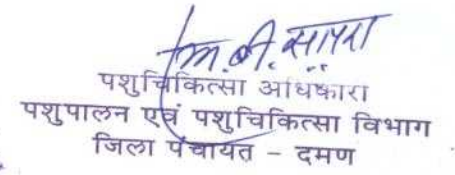 पशुचिकित्सा अधिकारी
पशुपालन एवं पशुचिकित्सा विभाग
जिला पंचायत - दमण